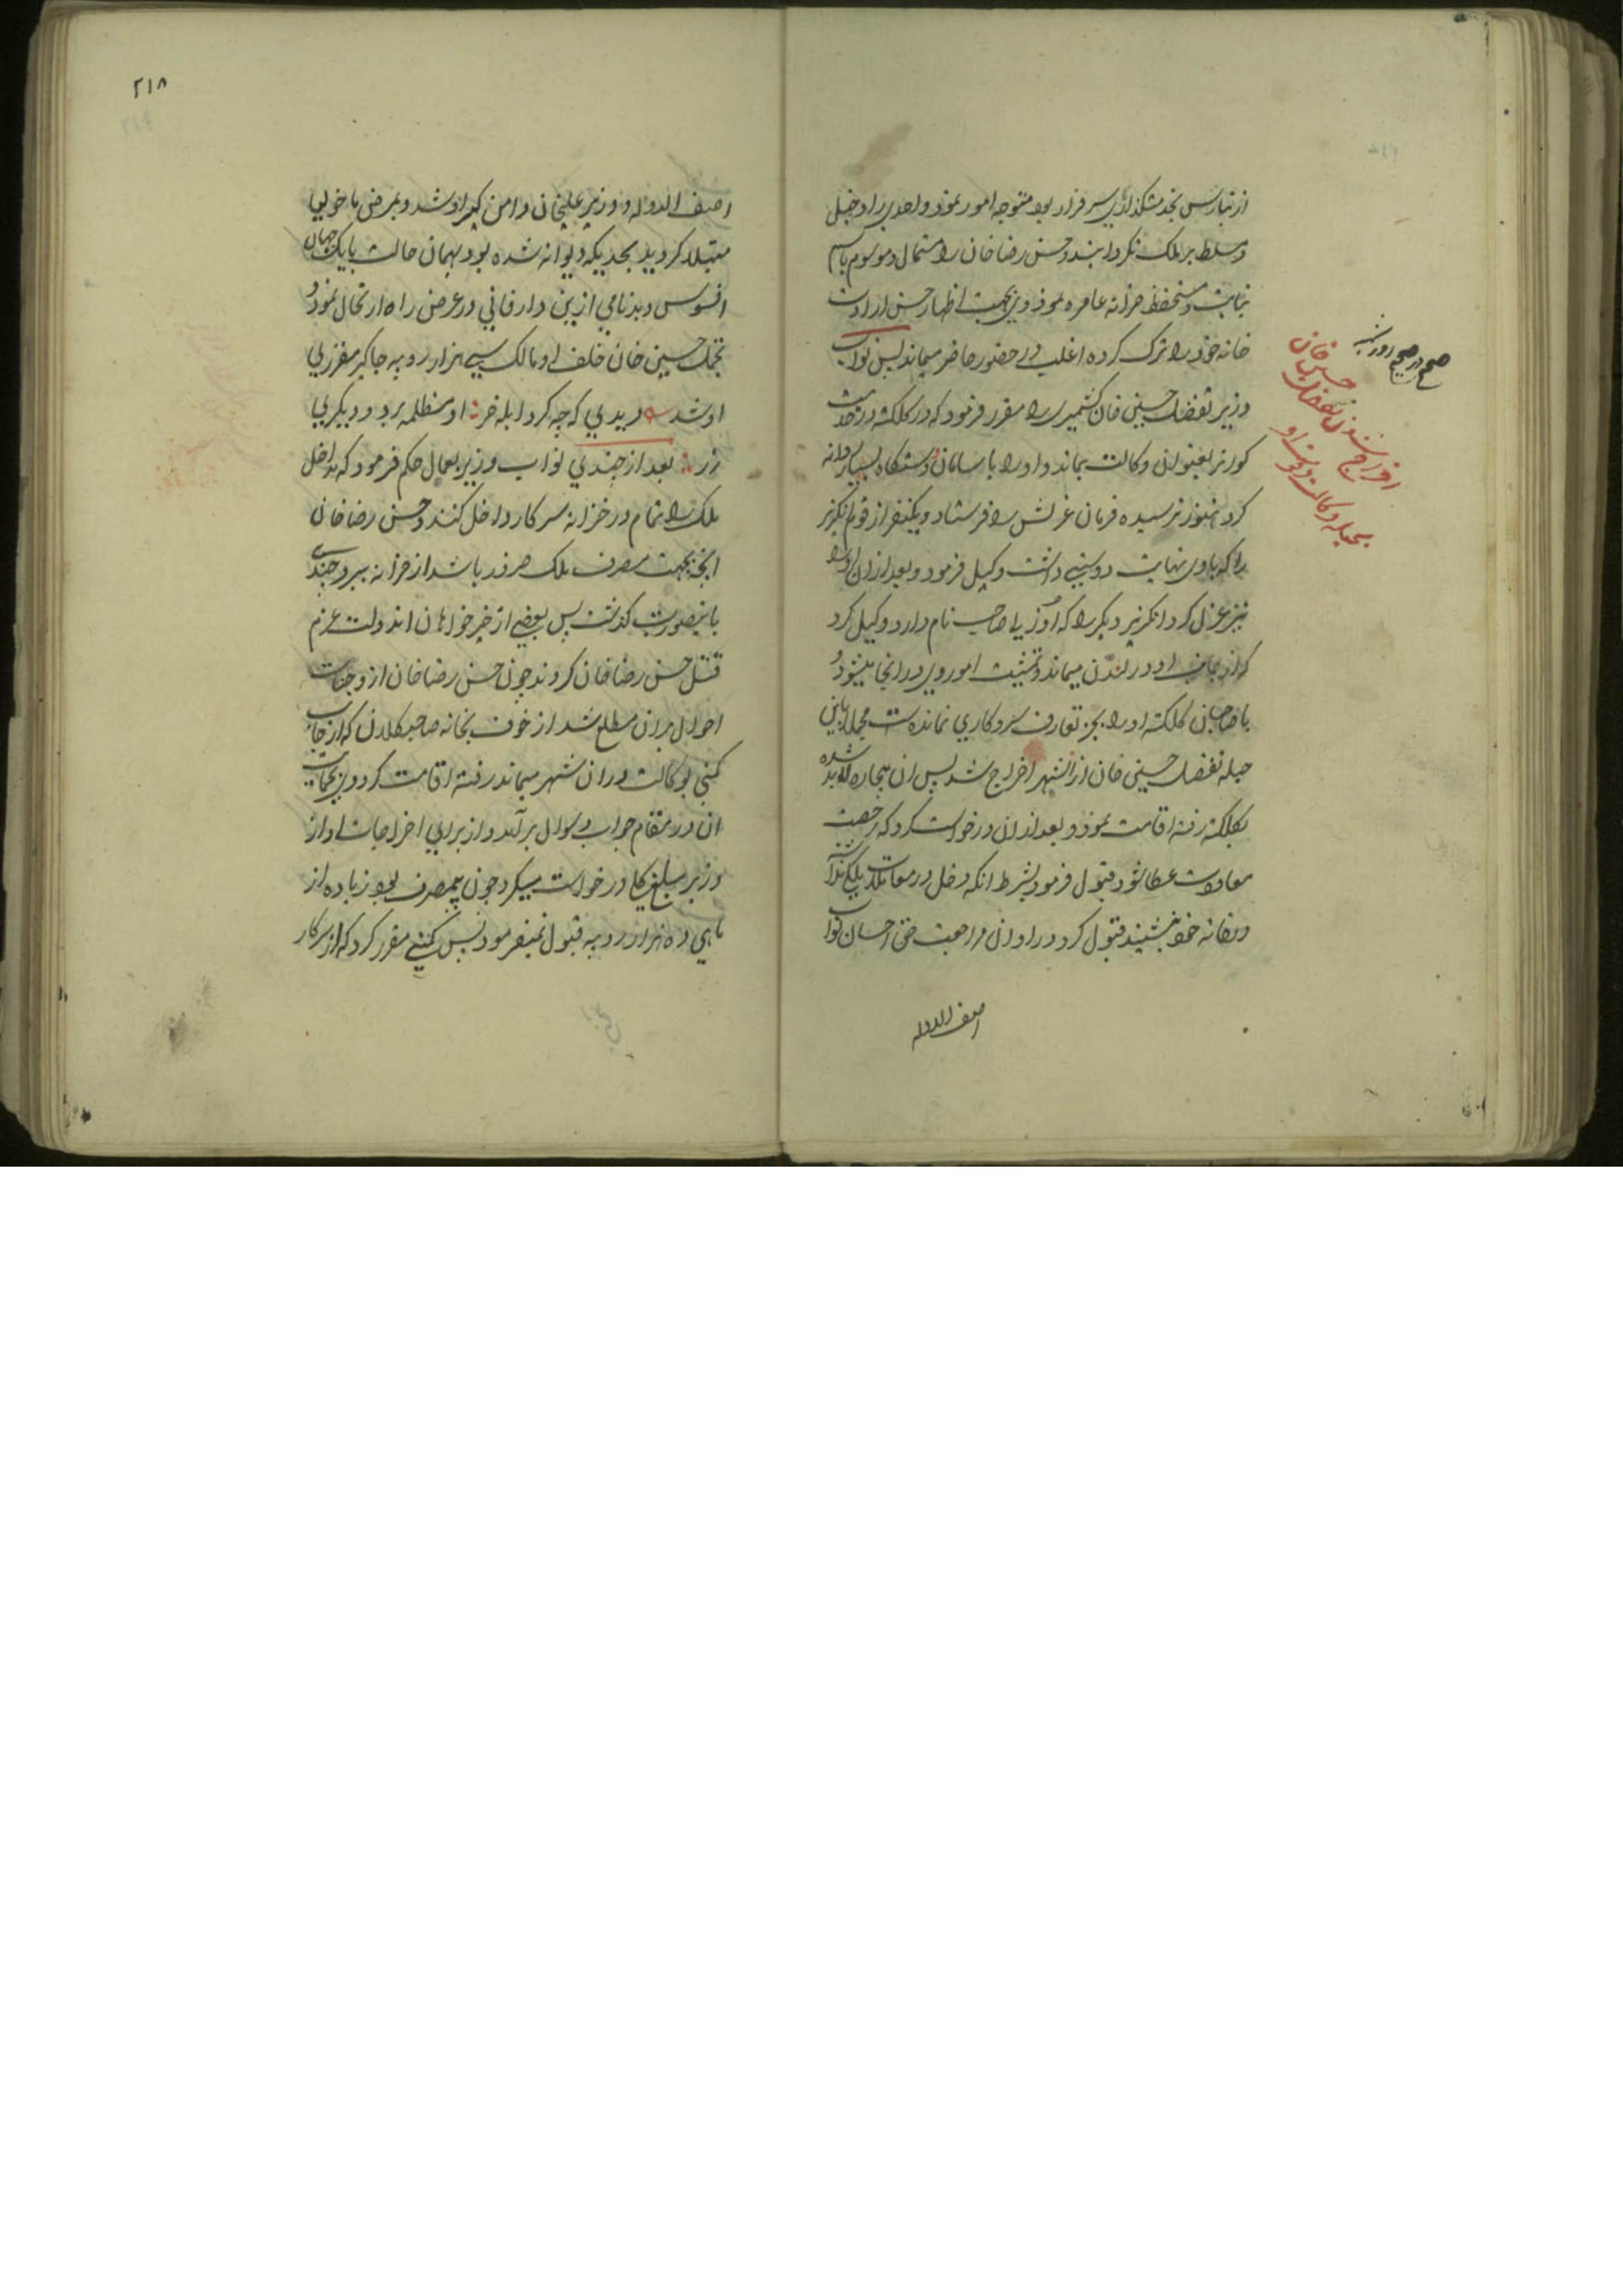 از بنارس بخدمتکذاری سرفراز بود متوجه امور نمود و احدی را دخیل
و مسلط بر ملک نکردانید و حسن رضا خان را مستمال و موسوم باسم
نیابت و مستحفظ خزانه عامره نمود وی بجهت اظهار حسن ارادت
خانه خود را ترک کرده اغلب در حضور حاضر میماند پس نواب
وزیر تفضل حسین خان کشمیری را مقرر فرمود که در کلکته در خدمت
کورنر بعنوان وکالت بماند و او را با سامان و دستکاه بسیار روانه
کرد هنوز نرسیده فرمان عزلش را فرستاد و یکنفر از قوم انکریز
را که باوی نهایت دوستی داشت وکیل فرمود و بعد از ان او را
نیز عزل کرد انکریز دیکر را که صاحب نام دارد وکیل کرد
که از جانب او در لندن میماند و تمشیت امور وی در انجا میشود و
با صاحبان کلکته او را بجز تعارف سرو کاری نمانده است مجملا باین
حیله تفضل حسین خان از انشهر اخراج شد پس ان بیچاره لابد شده
بکلکته رفته اقامت نمود و بعد از ان درخواست کرد که رخصت
معاودت عطا شود قبول فرمود بشرط انکه دخل در معاملات ملکی نکند
و بخانه خود بنشیند قبول کرد در اوان مراجعت حق احسان نواب
اصف الدوله
صحیح در صحیح روز شنبه
اخراج شدن تفضل حسین خان
بحیله وکالت و فوت او
۲۱۸
اصف الدوله و وزیر علیخان دامن کیر او شد و بمرض ماخولیا
مبتلا کردید بحدیکه دیوانه شده بود بهمان حالت با یک جهان
افسوس و بدنامی ازین دار فانی در عرض راه ارتحال نمود و
تجمل حسین خان خلف او مالک سی هزار روپیه جاکیر مقرری
او شد دیدی که چه کرد ابله خر او مظلمه برد و دیکری
زر بعد از چندی نواب وزیر بعمال حکم فرمود که مداخل
ملک را تمام در خزانه سرکار داخل کنند و حسن رضا خان
انچه بجهت مصرف ملک ضرور باشد از خزانه ببرد چندی
باینصورت کذشت پس بعضی از خیرخواهان اندولت عزم
قتل حسن رضا خان کردند چون حسن رضا خان از وجنات
احوال بران مطلع شد از خوف بخانه صاحب کلان که از جانب
کمپنی بوکالت دران شهر میماند رفته اقامت کرد و بحمایت
ان در مقام جواب و سوال برآمد و از برای اخراجات او از
وزیر مبلغ کلی درخواست میکرد چون بیمصرف بود زیاده از
ماهی ده هزار روپیه قبول نمیفرمود پس کمپنی مقرر کرد که از سرکار